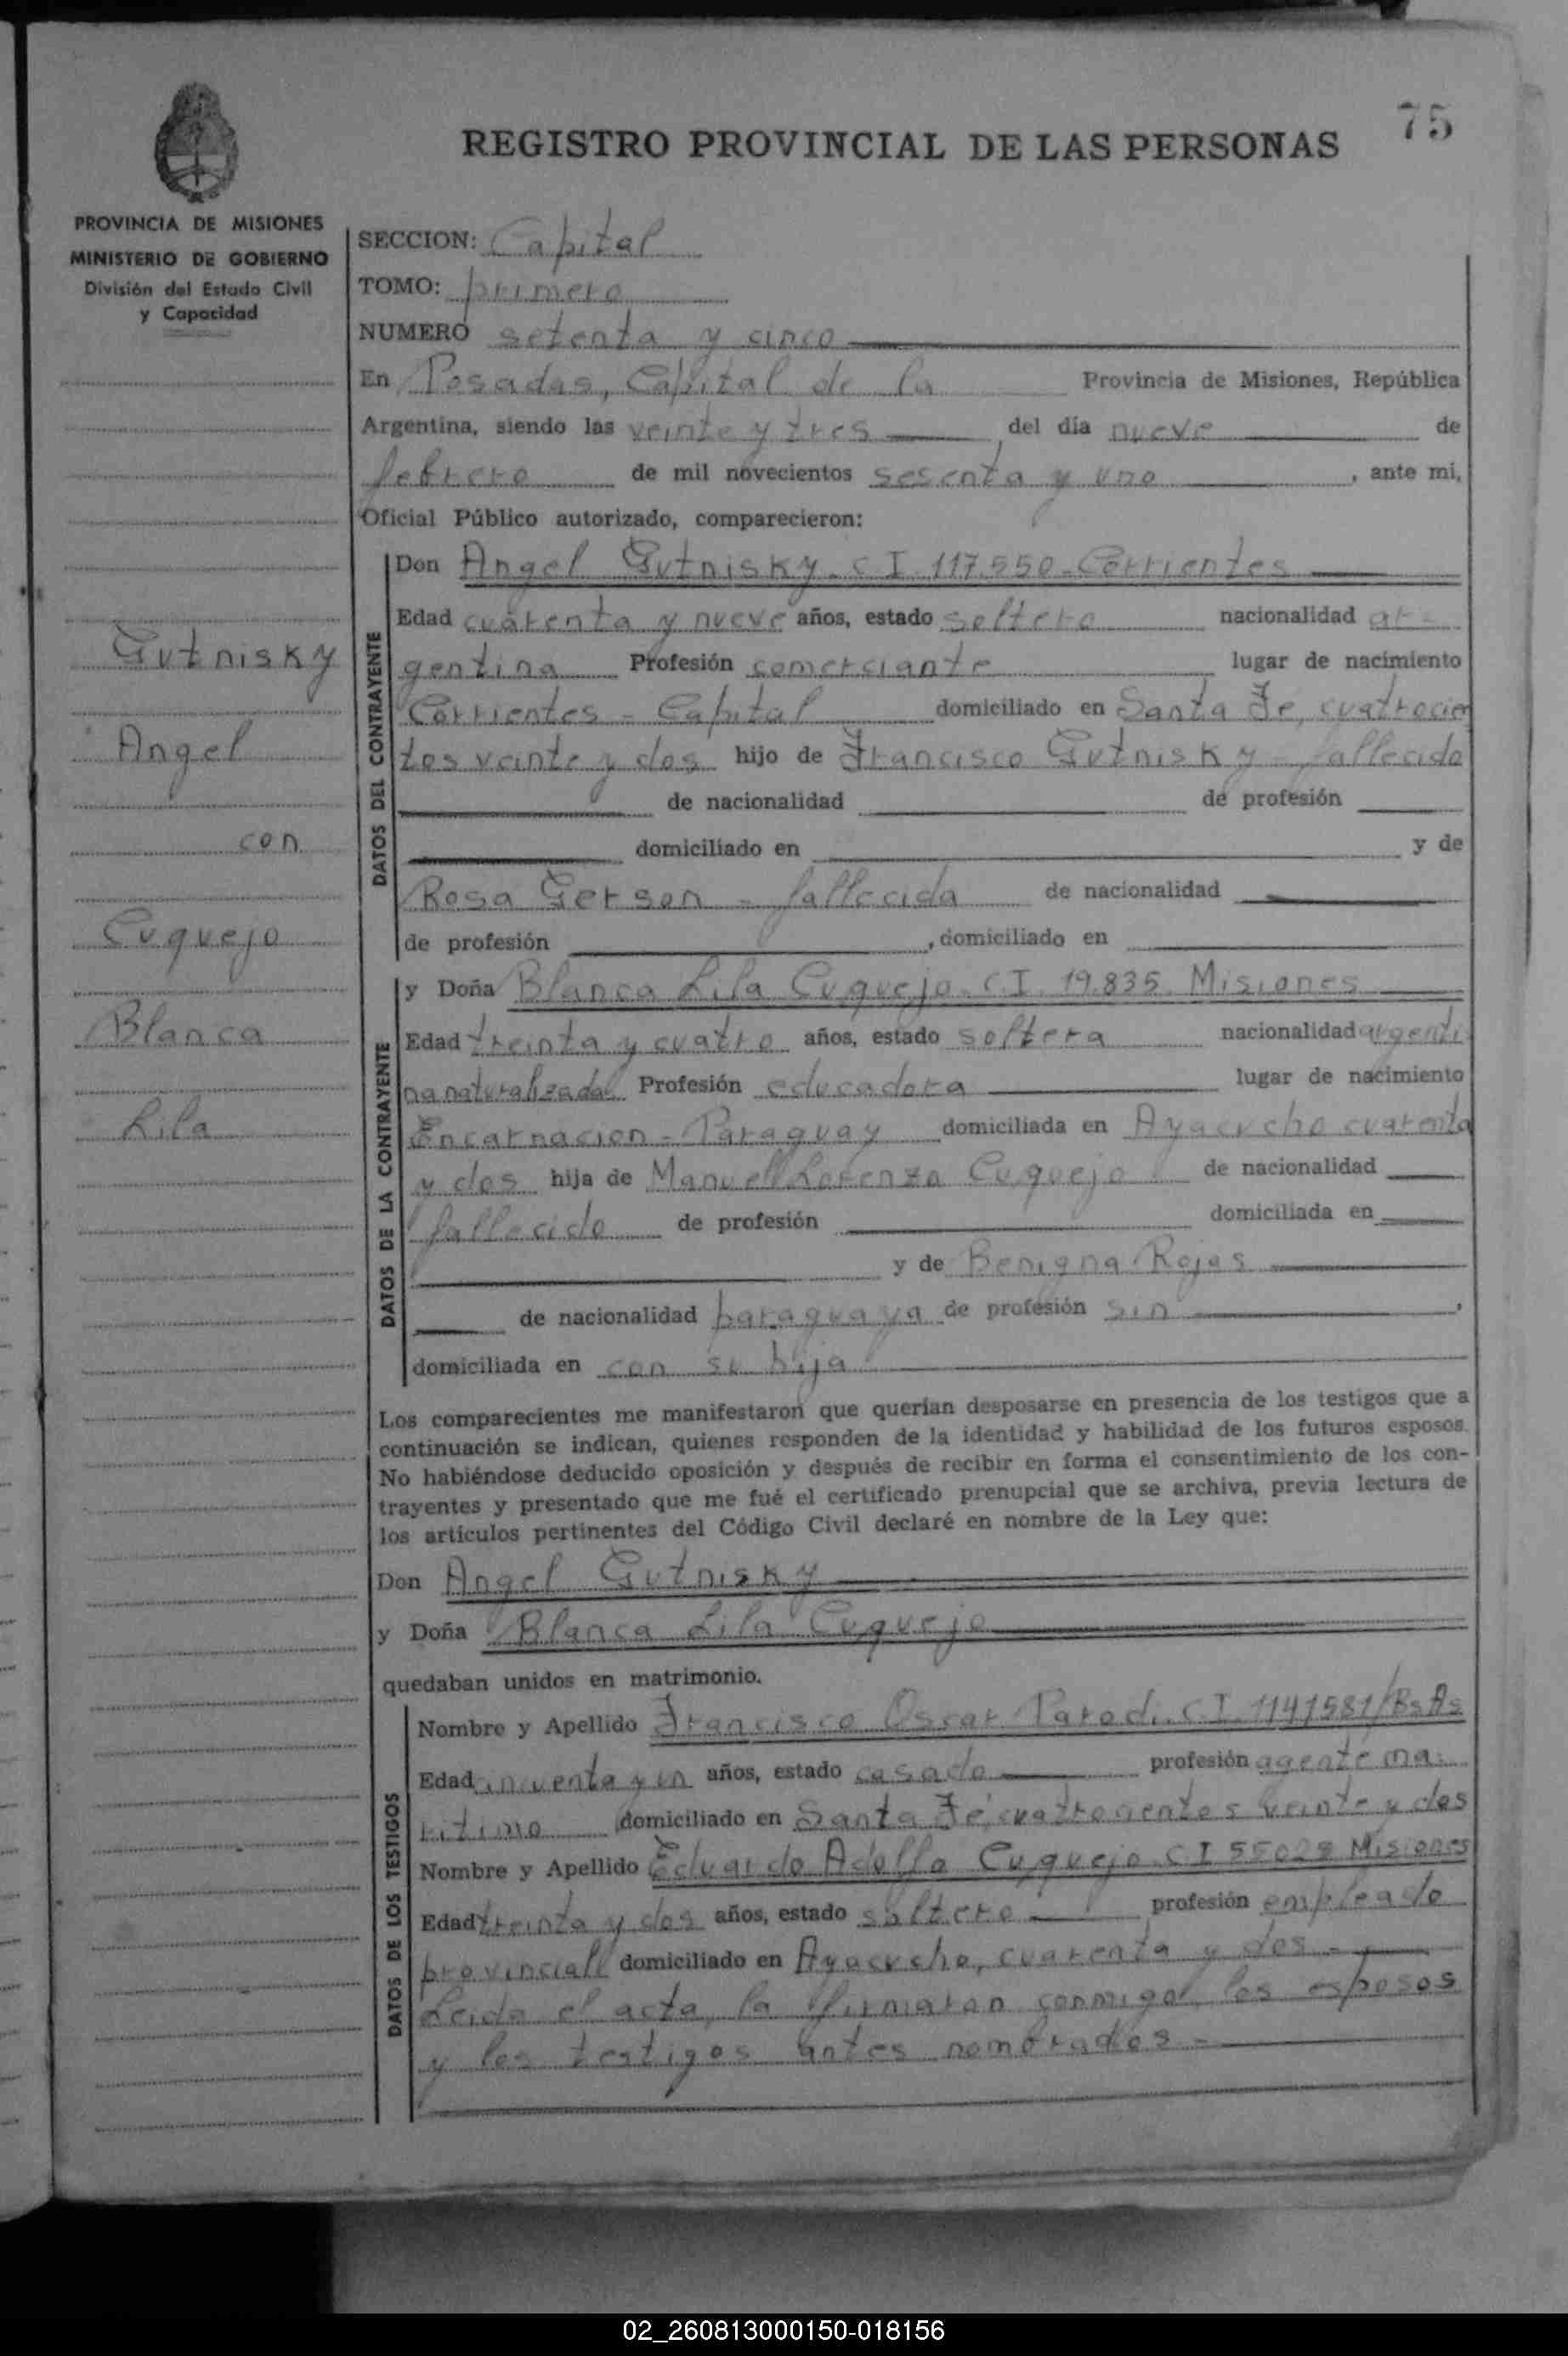 75
REGISTRO PROVINCIAL DE LAS PERSONAS
PROVINCIA DE MISIONES
MINISTERIO DE GOBIERNO
División del Estado Civil
y Capacidad
Gutnisky
Angel
con
Cuquejo
Blanca
Lila
SECCION: Capital
TOMO: primero
NUMERO setenta y cinco
En Posadas, Capital de la Provincia de Misiones, República
Argentina, siendo las veinte y tres del día nueve de
febrero de mil novecientos sesenta y uno, ante mi,
Oficial Público autorizado, comparecieron:
DATOS DEL CONTRAYENTE
Don Angel Gutnisky. C I. 117.550-Corrientes
Edad cuarenta y nueve años, estado soltero nacionalidad ar-
gentina Profesión comerciante lugar de nacimiento
Corrientes - Capital domiciliado en Santa Fe, cuatrocien
tos veinte y dos hijo de Francisco Gutnisky - fallecido
de nacionalidad de profesión
domiciliado en y de
Rosa Gerson - fallecida de nacionalidad
de profesión , domiciliado en
DATOS DE LA CONTRAYENTE
y Doña Blanca Lila Cuquejo. C.I. 19.835. Misiones
Edad treinta y cuatro años, estado soltera nacionalidad argenti
na naturalizada Profesión educadora lugar de nacimiento
Encarnacion - Paraguay domiciliada en Ayacucho cuarenta
y dos hija de Manuel Lorenzo Cuquejo de nacionalidad
fallecido de profesión domiciliada en
y de Benigna Rojas
de nacionalidad paraguaya de profesión sin ,
domiciliada en con su hija
Los comparecientes me manifestaron que querían desposarse en presencia de los testigos que a
continuación se indican, quienes responden de la identidad y habilidad de los futuros esposos.
No habiéndose deducido oposición y después de recibir en forma el consentimiento de los con-
trayentes y presentado que me fué el certificado prenupcial que se archiva, previa lectura de
los artículos pertinentes del Código Civil declaré en nombre de la Ley que:
Don Angel Gutnisky
y Doña Blanca Lila Cuquejo
quedaban unidos en matrimonio.
DATOS DE LOS TESTIGOS
Nombre y Apellido Francisco Oscar Parodi. C.I. 1141581/BsAs
Edad cincuenta y un años, estado casado profesión agente ma-
ritimo domiciliado en Santa Fé cuatrocientos veinte y dos
Nombre y Apellido Eduardo Adolfo Cuquejo. C I 55028 Misiones
Edad treinta y dos años, estado soltero profesión empleado
provincial domiciliado en Ayacucho, cuarenta y dos -
Leida el acta, la firmaron conmigo, los esposos
y los testigos antes nombrados -
02_260813000150-018156